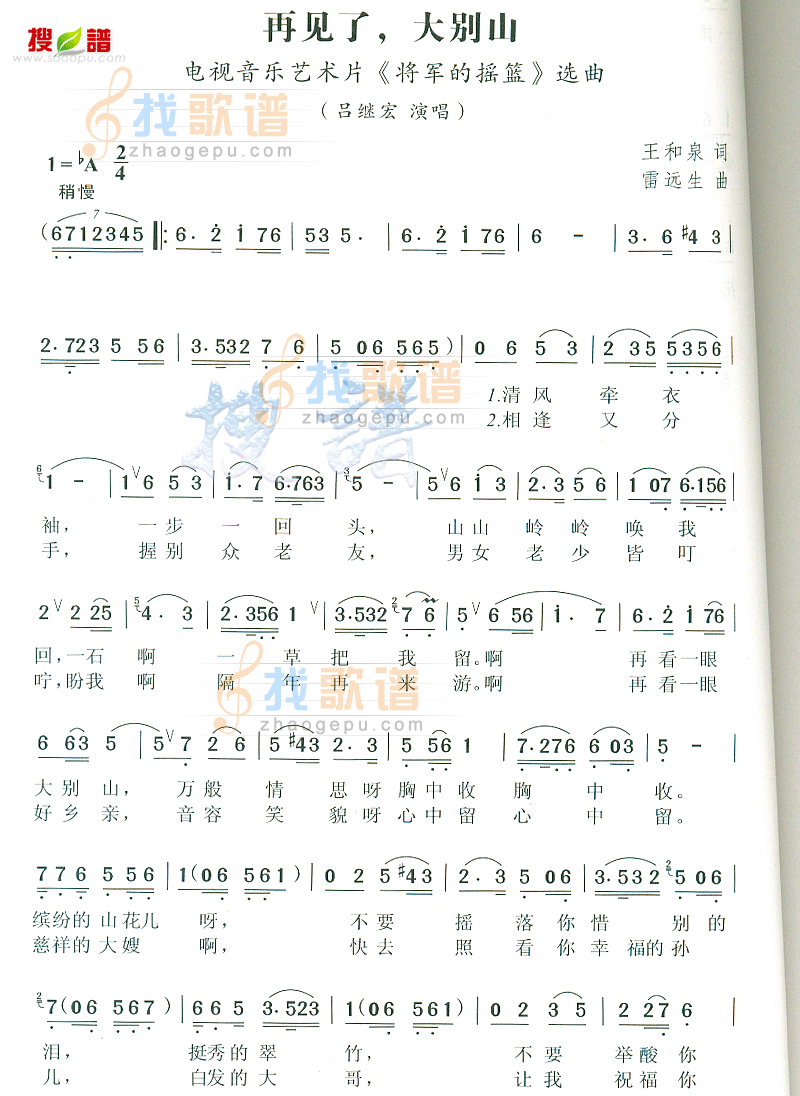 搜谱
www.sooopu.com
再见了，大别山
电视音乐艺术片《将军的摇篮》选曲
（吕继宏 演唱）
找歌谱
zhaogepu.com
1=♭A 2/4
王和泉 词
雷远生 曲
稍慢
(6712345 ‖: 6. 2 1 76 | 53 5. | 6. 2 1 76 | 6 - | 3. 6 #4 3
2.723 5 56 | 3.532 7 6 | 5 06 565) | 0 6 5 3 | 2 35 5356
1.清风 牵 衣
2.相逢 又 分
1 - | 1 6 5 3 | 1. 7 6.763 | 5 - | 5 6 1 3 | 2. 3 5 6 | 1 07 6.156
袖， 一步 一 回 头， 山山 岭岭 唤 我
手， 握别 众 老 友， 男女 老少 皆 叮
2 2 25 | 4. 3 | 2.356 1 | 3.532 7 6 | 5 6 56 | 1. 7 | 6. 2 1 76
回，一石 啊 一 草 把 我 留。啊 再看一眼
咛，盼我 啊 隔 年 再 来 游。啊 再看一眼
6 63 5 | 5 7 2 6 | 5 #43 3. 2 | 5 56 1 | 7.276 6 03 | 5 -
大别山， 万般 情 思呀 胸中收 胸 中 收。
好乡亲， 音容 笑 貌呀 心中留 心 中 留。
7 7 6 5 56 | 1(06 561) | 0 2 5 #43 | 2. 3 5 06 | 3.532 5 06
缤纷的 山花儿 呀， 不要 摇 落你 惜 别的
慈祥的 大嫂 啊， 快去 照 看你 幸 福的孙
7(06 567) | 66 5 3.523 | 1(06 561) | 0 2 3 5 | 2 27 6
泪， 挺秀的 翠 竹， 不 要 举酸 你
儿， 白发的 大 哥， 让 我 祝福 你